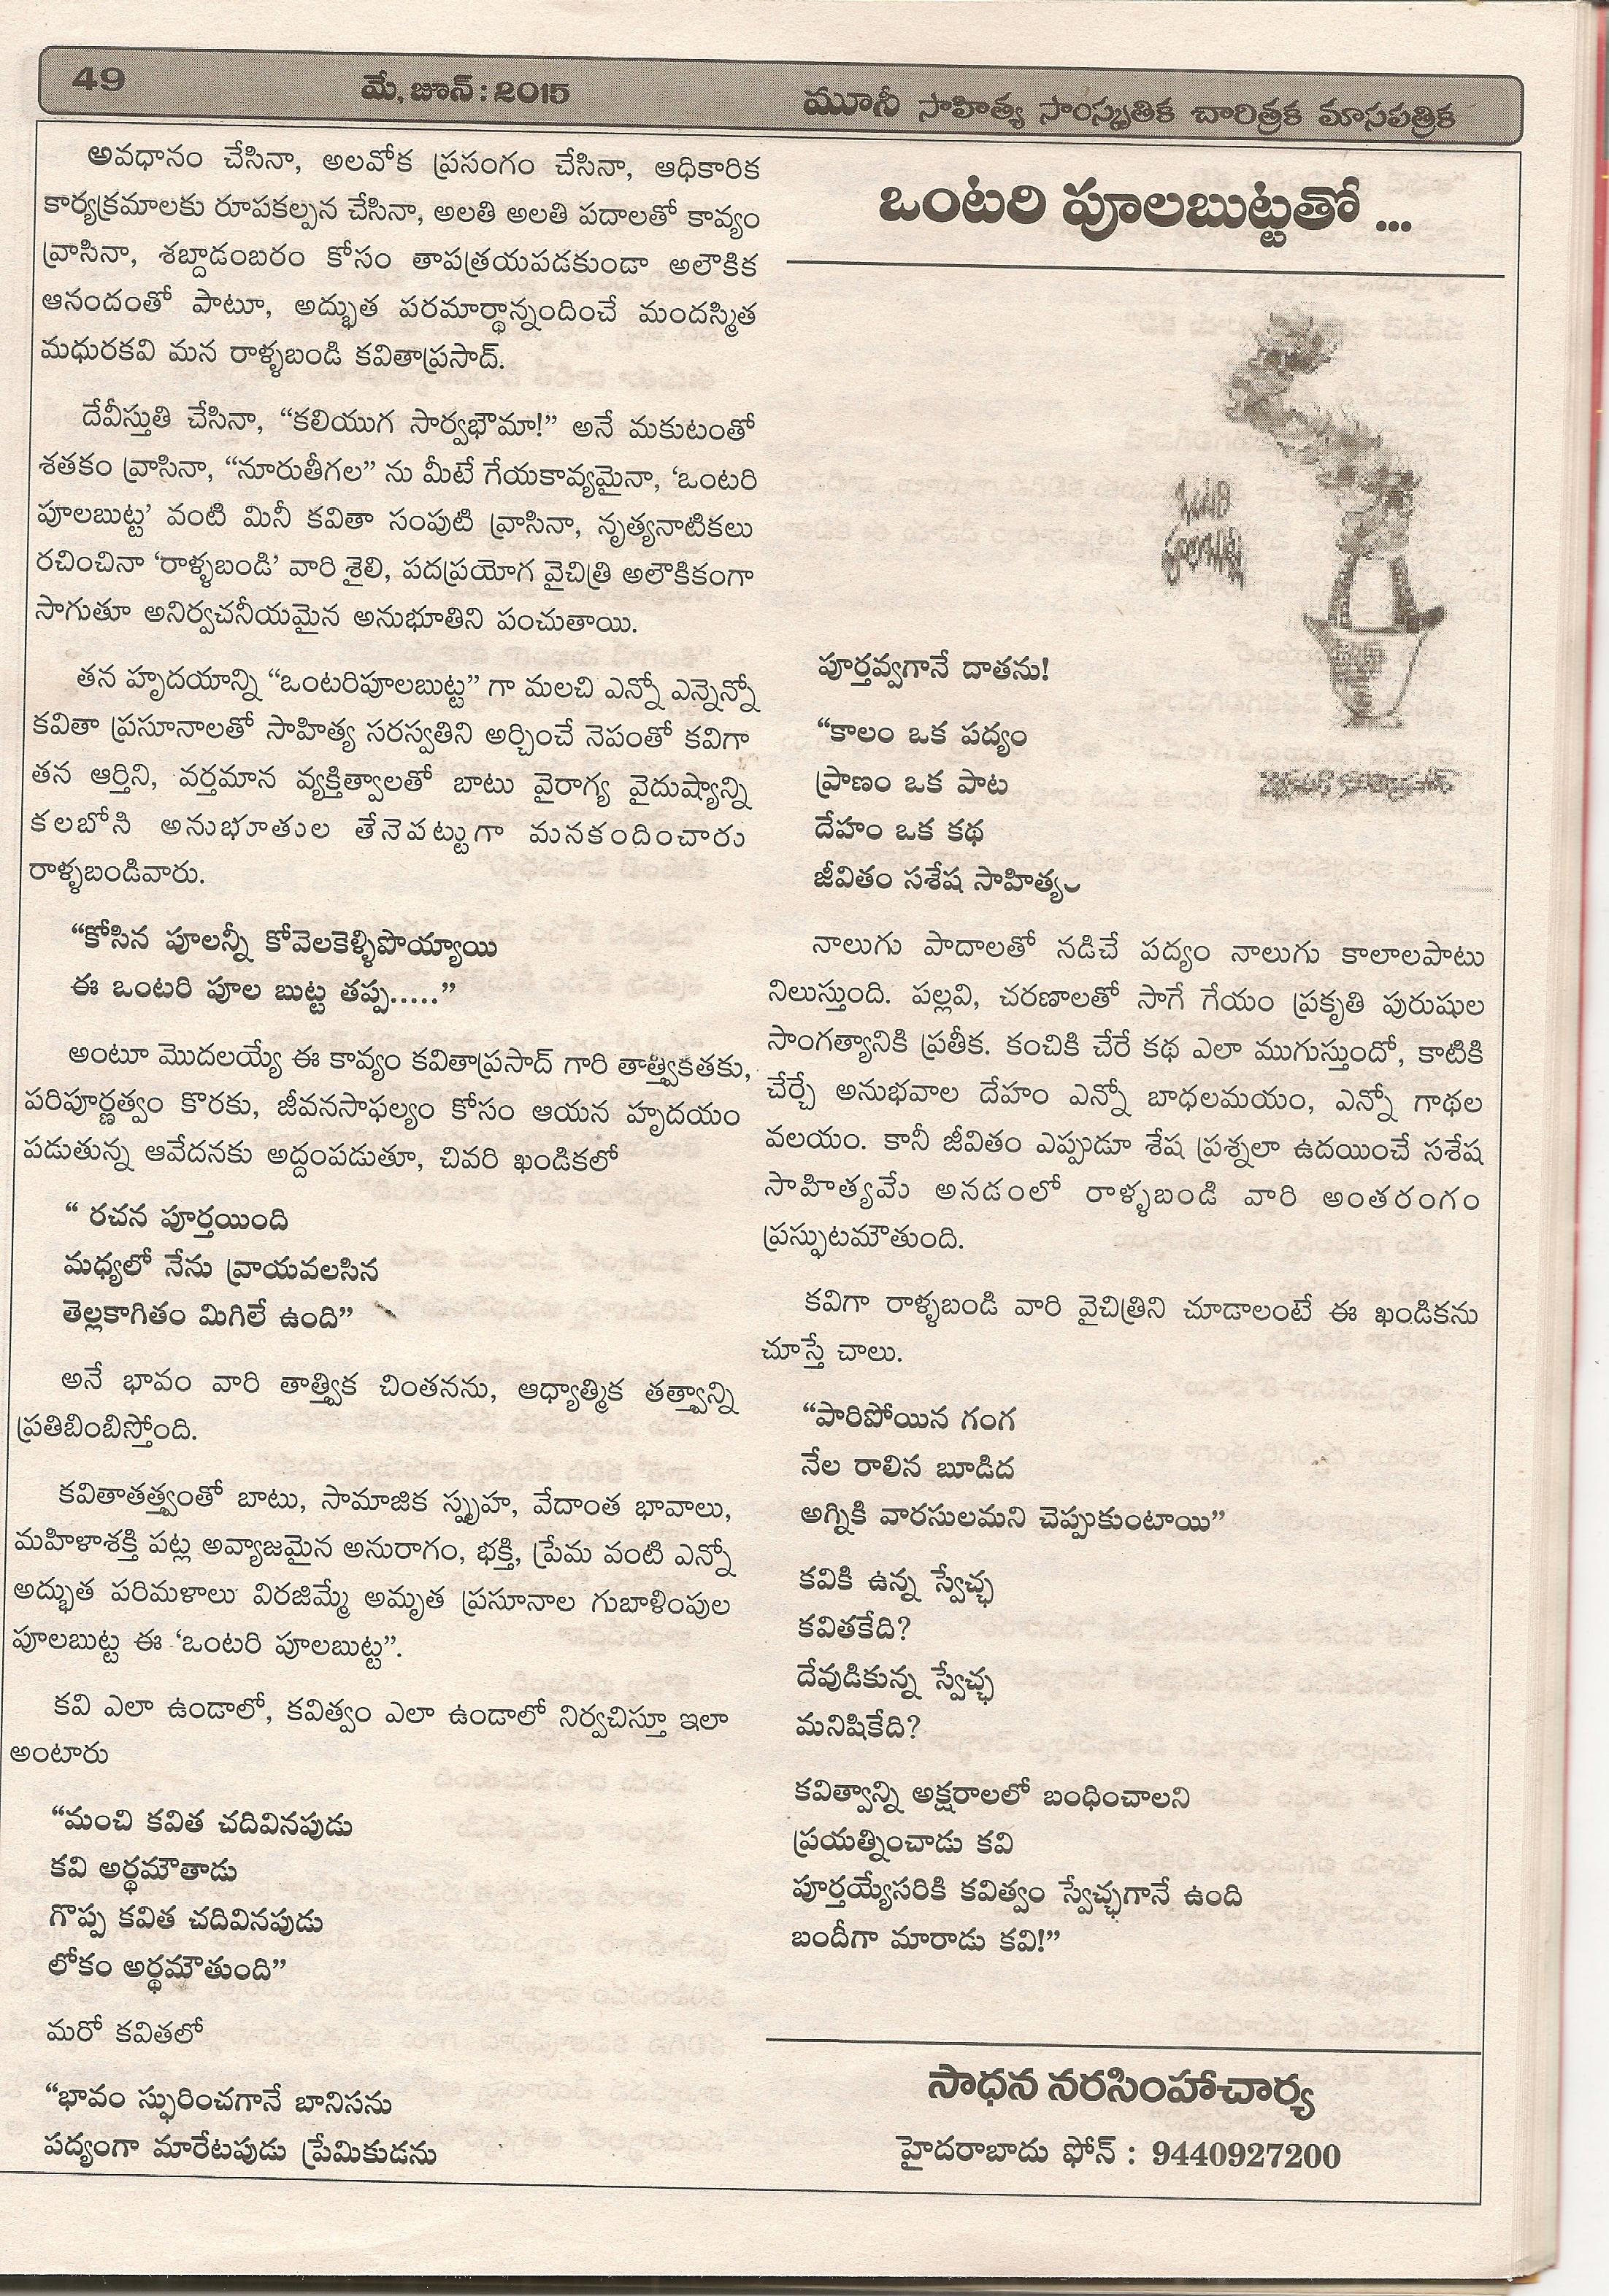 49
మే, జూన్ : 2015
మూసీ సాహిత్య సాంస్కృతిక చారిత్రక మాసపత్రిక
ఒంటరి పూలబుట్టతో ...
అవధానం చేసినా, అలవోక ప్రసంగం చేసినా, ఆధికారిక
కార్యక్రమాలకు రూపకల్పన చేసినా, అలతి అలతి పదాలతో కావ్యం
వ్రాసినా, శబ్దాడంబరం కోసం తాపత్రయపడకుండా అలౌకిక
ఆనందంతో పాటూ, అద్భుత పరమార్థాన్నందించే మందస్మిత
మధురకవి మన రాళ్ళబండి కవితాప్రసాద్.
దేవీస్తుతి చేసినా, “కలియుగ సార్వభౌమా!” అనే మకుటంతో
శతకం వ్రాసినా, “నూరుతీగల” ను మీటే గేయకావ్యమైనా, ‘ఒంటరి
పూలబుట్ట’ వంటి మినీ కవితా సంపుటి వ్రాసినా, నృత్యనాటికలు
రచించినా ‘రాళ్ళబండి’ వారి శైలి, పదప్రయోగ వైచిత్రి అలౌకికంగా
సాగుతూ అనిర్వచనీయమైన అనుభూతిని పంచుతాయి.
తన హృదయాన్ని “ఒంటరిపూలబుట్ట” గా మలచి ఎన్నో ఎన్నెన్నో
కవితా ప్రసూనాలతో సాహిత్య సరస్వతిని అర్చించే నెపంతో కవిగా
తన ఆర్తిని, వర్తమాన వ్యక్తిత్వాలతో బాటు వైరాగ్య వైదుష్యాన్ని
కలబోసి అనుభూతుల తేనెపట్టుగా మనకందించారు
రాళ్ళబండివారు.
“కోసిన పూలన్నీ కోవెలకెళ్ళిపొయ్యాయి
ఈ ఒంటరి పూల బుట్ట తప్ప.....”
అంటూ మొదలయ్యే ఈ కావ్యం కవితాప్రసాద్ గారి తాత్త్వికతకు,
పరిపూర్ణత్వం కొరకు, జీవనసాఫల్యం కోసం ఆయన హృదయం
పడుతున్న ఆవేదనకు అద్దంపడుతూ, చివరి ఖండికలో
“ రచన పూర్తయింది
మధ్యలో నేను వ్రాయవలసిన
తెల్లకాగితం మిగిలే ఉంది”
అనే భావం వారి తాత్త్విక చింతనను, ఆధ్యాత్మిక తత్త్వాన్ని
ప్రతిబింబిస్తోంది.
కవితాతత్త్వంతో బాటు, సామాజిక స్పృహ, వేదాంత భావాలు,
మహిళాశక్తి పట్ల అవ్యాజమైన అనురాగం, భక్తి, ప్రేమ వంటి ఎన్నో
అద్భుత పరిమళాలు విరజిమ్మే అమృత ప్రసూనాల గుబాళింపుల
పూలబుట్ట ఈ ‘ఒంటరి పూలబుట్ట”.
కవి ఎలా ఉండాలో, కవిత్వం ఎలా ఉండాలో నిర్వచిస్తూ ఇలా
అంటారు
“మంచి కవిత చదివినపుడు
కవి అర్థమౌతాడు
గొప్ప కవిత చదివినపుడు
లోకం అర్థమౌతుంది”
మరో కవితలో
“భావం స్ఫురించగానే బానిసను
పద్యంగా మారేటపుడు ప్రేమికుడను
ఒంటరి
పూలబుట్ట
పూర్తవ్వగానే దాతను!
“కాలం ఒక పద్యం
ప్రాణం ఒక పాట
దేహం ఒక కథ
జీవితం సశేష సాహిత్యం
నాలుగు పాదాలతో నడిచే పద్యం నాలుగు కాలాలపాటు
నిలుస్తుంది. పల్లవి, చరణాలతో సాగే గేయం ప్రకృతి పురుషుల
సాంగత్యానికి ప్రతీక. కంచికి చేరే కథ ఎలా ముగుస్తుందో, కాటికి
చేర్చే అనుభవాల దేహం ఎన్నో బాధలమయం, ఎన్నో గాథల
వలయం. కానీ జీవితం ఎప్పుడూ శేష ప్రశ్నలా ఉదయించే సశేష
సాహిత్యమే అనడంలో రాళ్ళబండి వారి అంతరంగం
ప్రస్ఫుటమౌతుంది.
కవిగా రాళ్ళబండి వారి వైచిత్రిని చూడాలంటే ఈ ఖండికను
చూస్తే చాలు.
“పారిపోయిన గంగ
నేల రాలిన బూడిద
అగ్నికి వారసులమని చెప్పుకుంటాయి”
కవికి ఉన్న స్వేచ్ఛ
కవితకేది?
దేవుడికున్న స్వేచ్ఛ
మనిషికేది?
కవిత్వాన్ని అక్షరాలలో బంధించాలని
ప్రయత్నించాడు కవి
పూర్తయ్యేసరికి కవిత్వం స్వేచ్ఛగానే ఉంది
బందీగా మారాడు కవి!”
సాధన నరసింహాచార్య
హైదరాబాదు ఫోన్ : 9440927200